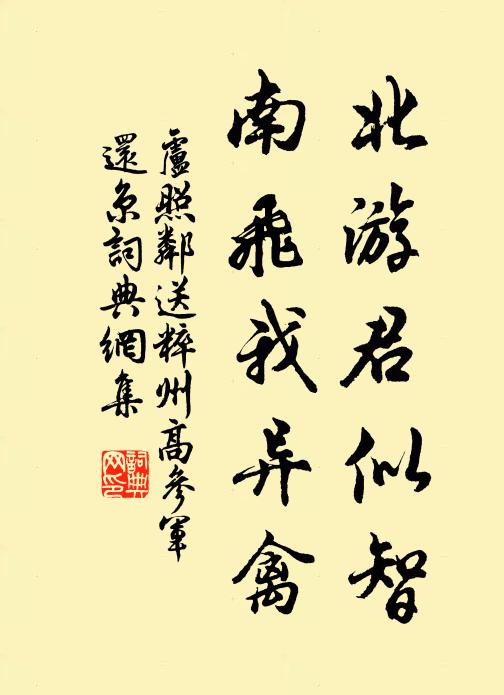 北游君似智
南飛我异禽
盧照鄰送粹州高參軍
還京詞典網集
詞典
网印